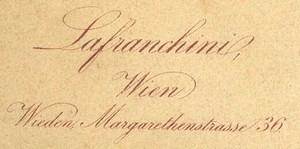 Lafranchini,
Wien
Wieden, Margarethenstrasse 36